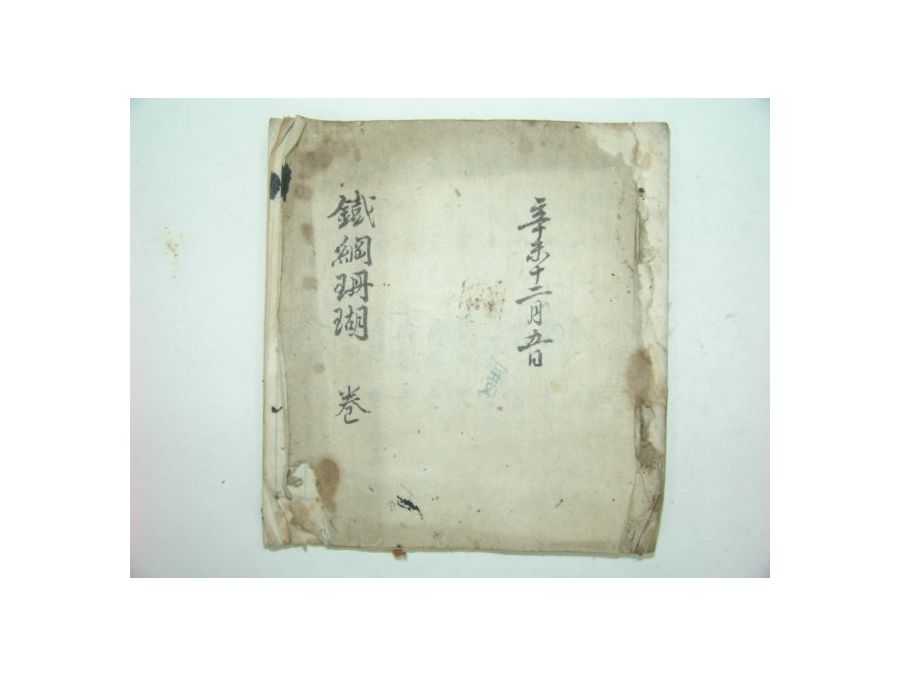 辛未十二月五日
鐵網珊瑚 卷